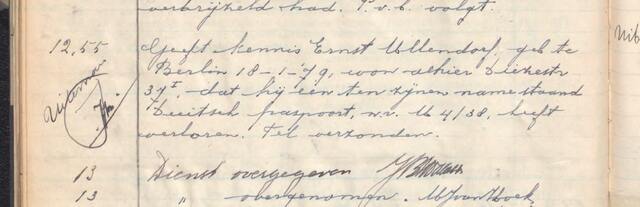 verbrijzeld had. P.v.b. volgt.
12,55 Geeft kennis Ernst Ullendorf, geb te
Berlin 18-1-79, woon alhier Diezestr
37 I, dat hij één ten zijnen name staand
Duitsch paspoort, nr. U 4/38, heeft
verloren. Tel verzonden.
13 Dienst overgegeven
13 " overgenomen.